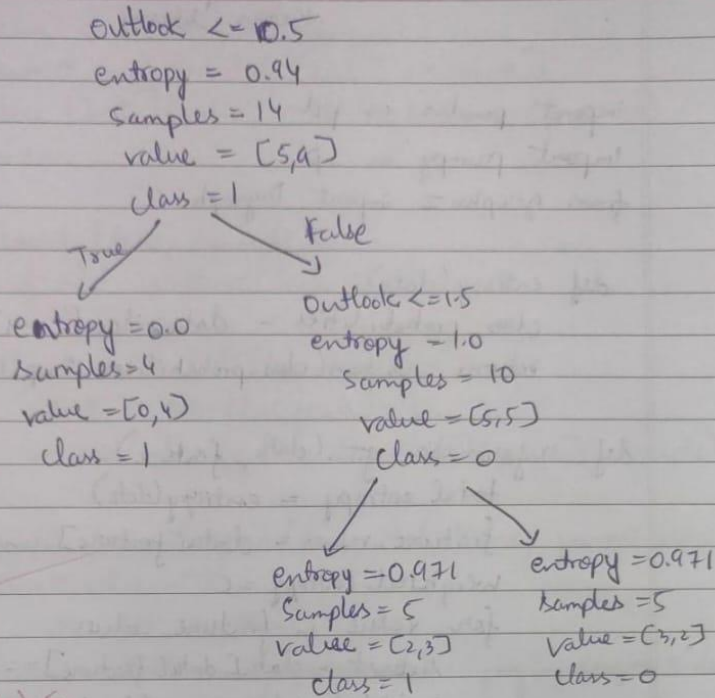 Outlook <= 0.5
entropy = 0.94
Samples = 14
value = [5,9]
class = 1
True
False
entropy = 0.0
samples = 4
value = [0,4]
class = 1
Outlook <= 1.5
entropy = 1.0
Samples = 10
value = [5,5]
class = 0
entropy = 0.971
Samples = 5
value = [2,3]
class = 1
entropy = 0.971
samples = 5
value = [3,2]
class = 0